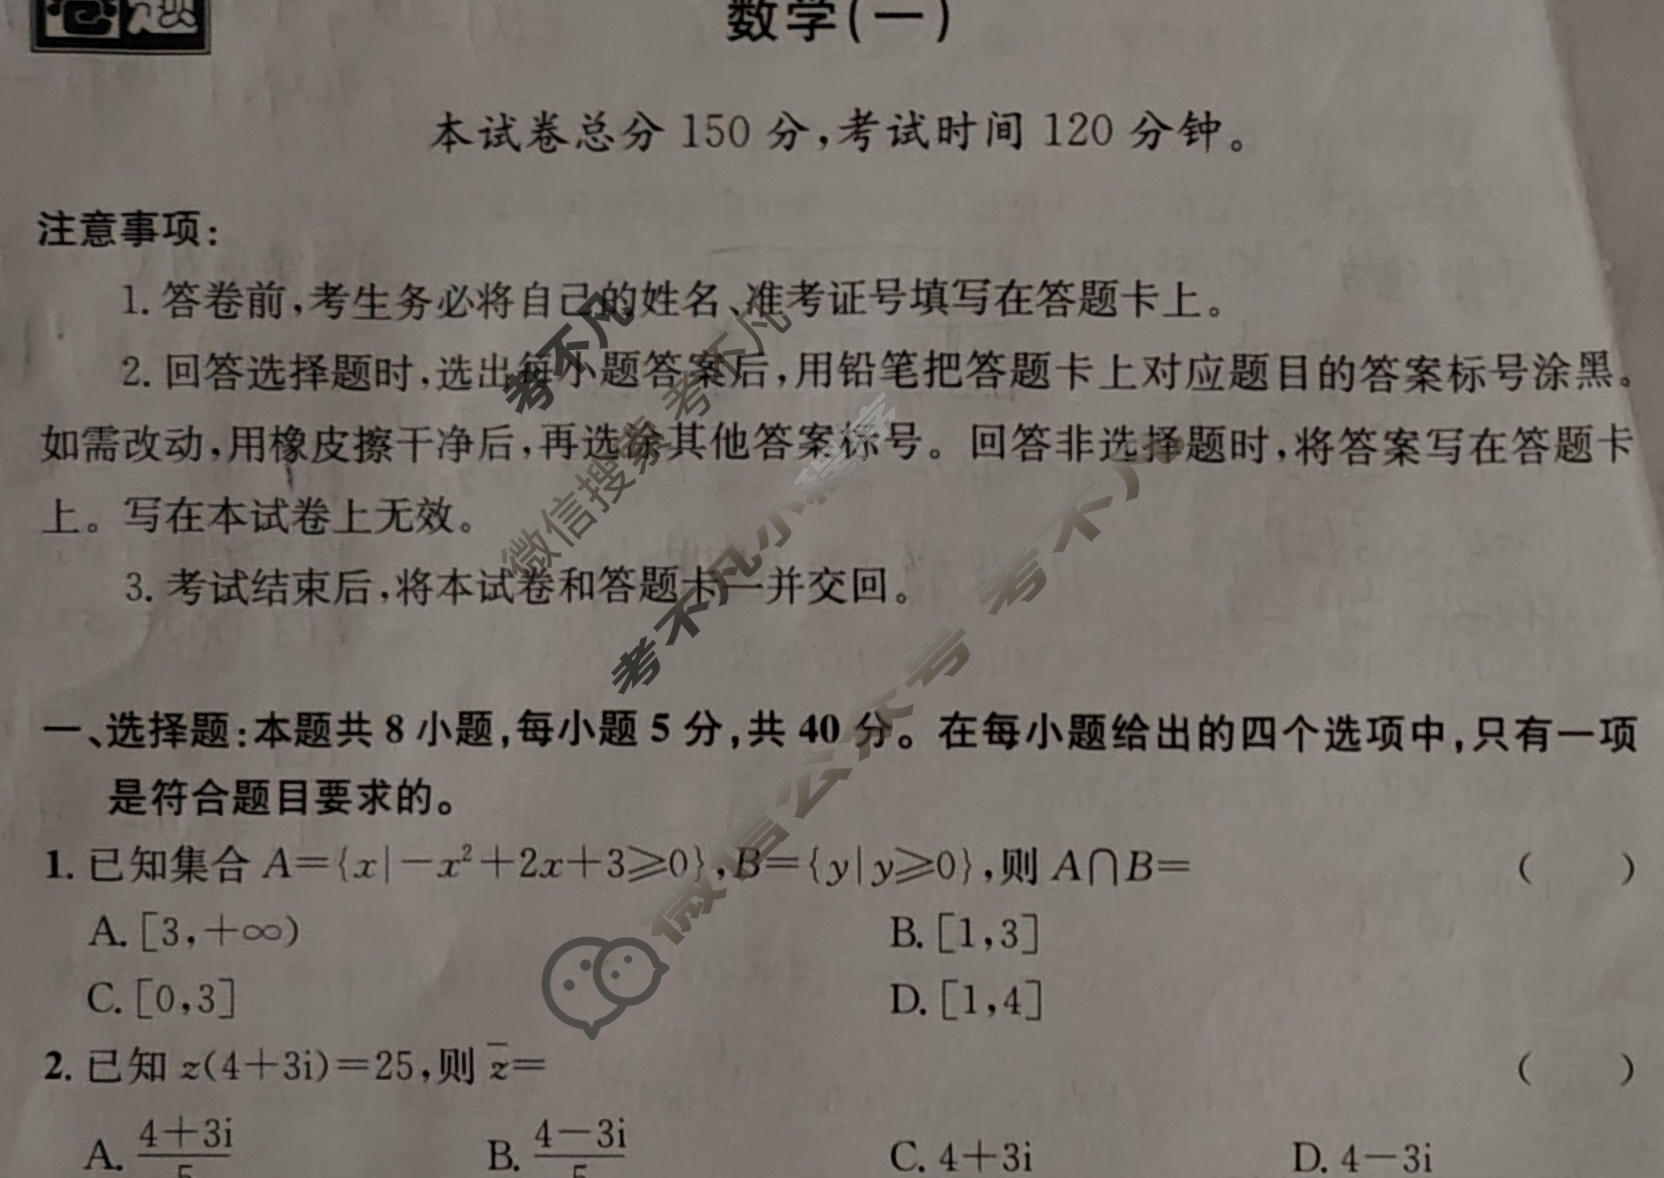 卷题
数学(一)
本试卷总分 150 分,考试时间 120 分钟。
注意事项:
1. 答卷前,考生务必将自己的姓名、准考证号填写在答题卡上。
2. 回答选择题时,选出每小题答案后,用铅笔把答题卡上对应题目的答案标号涂黑。
如需改动,用橡皮擦干净后,再选涂其他答案标号。回答非选择题时,将答案写在答题卡
上。写在本试卷上无效。
3. 考试结束后,将本试卷和答题卡一并交回。
一、选择题:本题共 8 小题,每小题 5 分,共 40 分。在每小题给出的四个选项中,只有一项
是符合题目要求的。
1. 已知集合 A={x|-x²+2x+3≥0},B={y|y≥0},则 A∩B= ( )
A. [3,+∞) B. [1,3]
C. [0,3] D. [1,4]
2. 已知 z(4+3i)=25,则 z̅= ( )
A. (4+3i)/5 B. (4-3i)/5 C. 4+3i D. 4-3i
考不凡
微信搜索 考不凡
考不凡小程序
微信公众号 考不凡